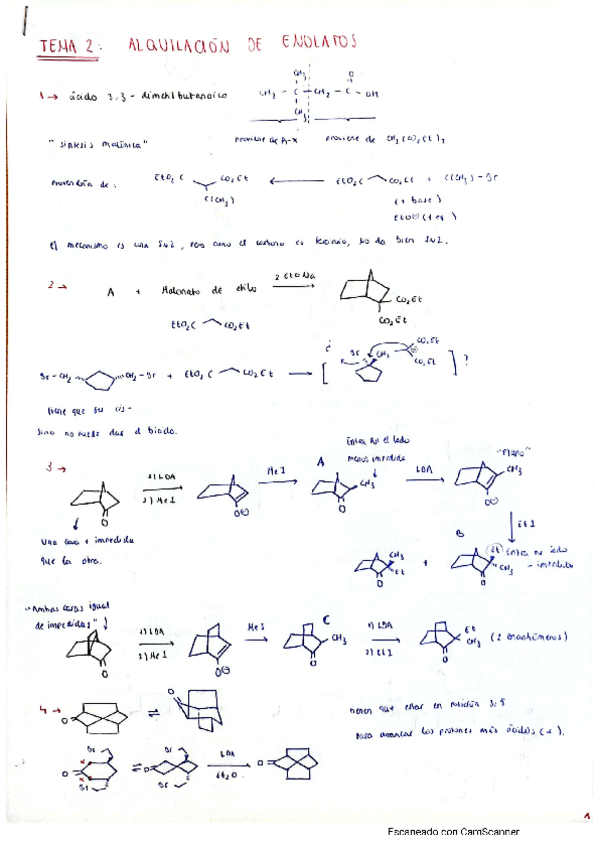 TEMA 2: ALQUILACIÓN DE ENOLATOS
1 → ácido 3,3-dimetilbutanoico
CH3
CH3 - C - CH2 - C - OH
O
CH3
"síntesis malónica"
proviene de R-X proviene de CH2(CO2Et)2
Provendría de:
EtO2C CO2Et ← EtO2C CO2Et + C(CH3)-Br
C(CH3) (+ base)
EtO⊖ (1 eq)
El mecanismo es una SN2, pero como el carbono es terciario, no da bien SN2.
2 → A + Malonato de etilo 2 EtONa
CO2Et
CO2Et
EtO2C CO2Et
Br-CH2 CH2-Br + EtO2C CO2Et → [ Br CH2 CO2Et CO2Et ] ?
tiene que ser cis-
sino no puede dar el biciclo.
3 →
1) LDA
2) MeI
O
O⊖
MeI
A
Entra por el lado
menos impedido
CH3
O
LDA
"Plano"
CH3
O⊖
Una cara + impedida
que la otra.
EtI
CH3
Et
O
+
B
Et
CH3
O
Entra por lado
- impedido
"Ambas caras igual
de impedidas"
O
1) LDA
2) MeI
O⊖
MeI
C
CH3
O
1) LDA
2) EtI
Et
CH3
O
(2 enantiómeros)
4 →
O ⇌ O
tienen que estar en posición 3,5
para arrancar los protones más ácidos (α).
Br Br
O ⇌ O
Br Br
LDA
Et2O
O
1
Escaneado con CamScanner